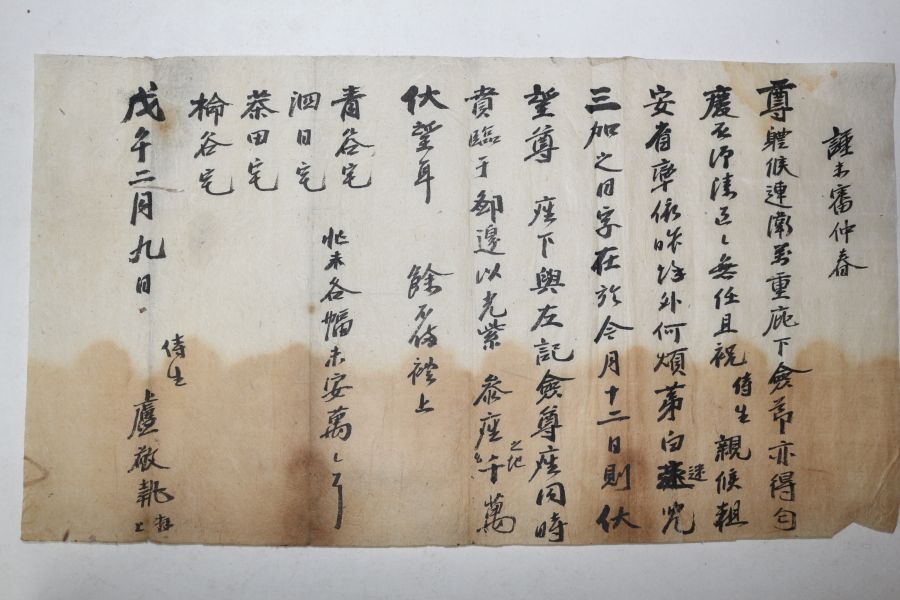 謹未審仲春
尊體候連衛萬重庇下僉節亦得勻
慶否溸區〻無任且祝侍生親候粗
安省率依昨餘外何煩第白迷兒
三加之日字在於今月十二日則伏
望尊座下與左記僉尊座同時
賁臨于鄙邊以光紫參座之地千萬
伏望耳餘不備禮上
青谷宅
泗日宅
蔡田宅
棆谷宅
忙未各幅未安萬〻
戊午二月九日
侍生盧敬執拜上